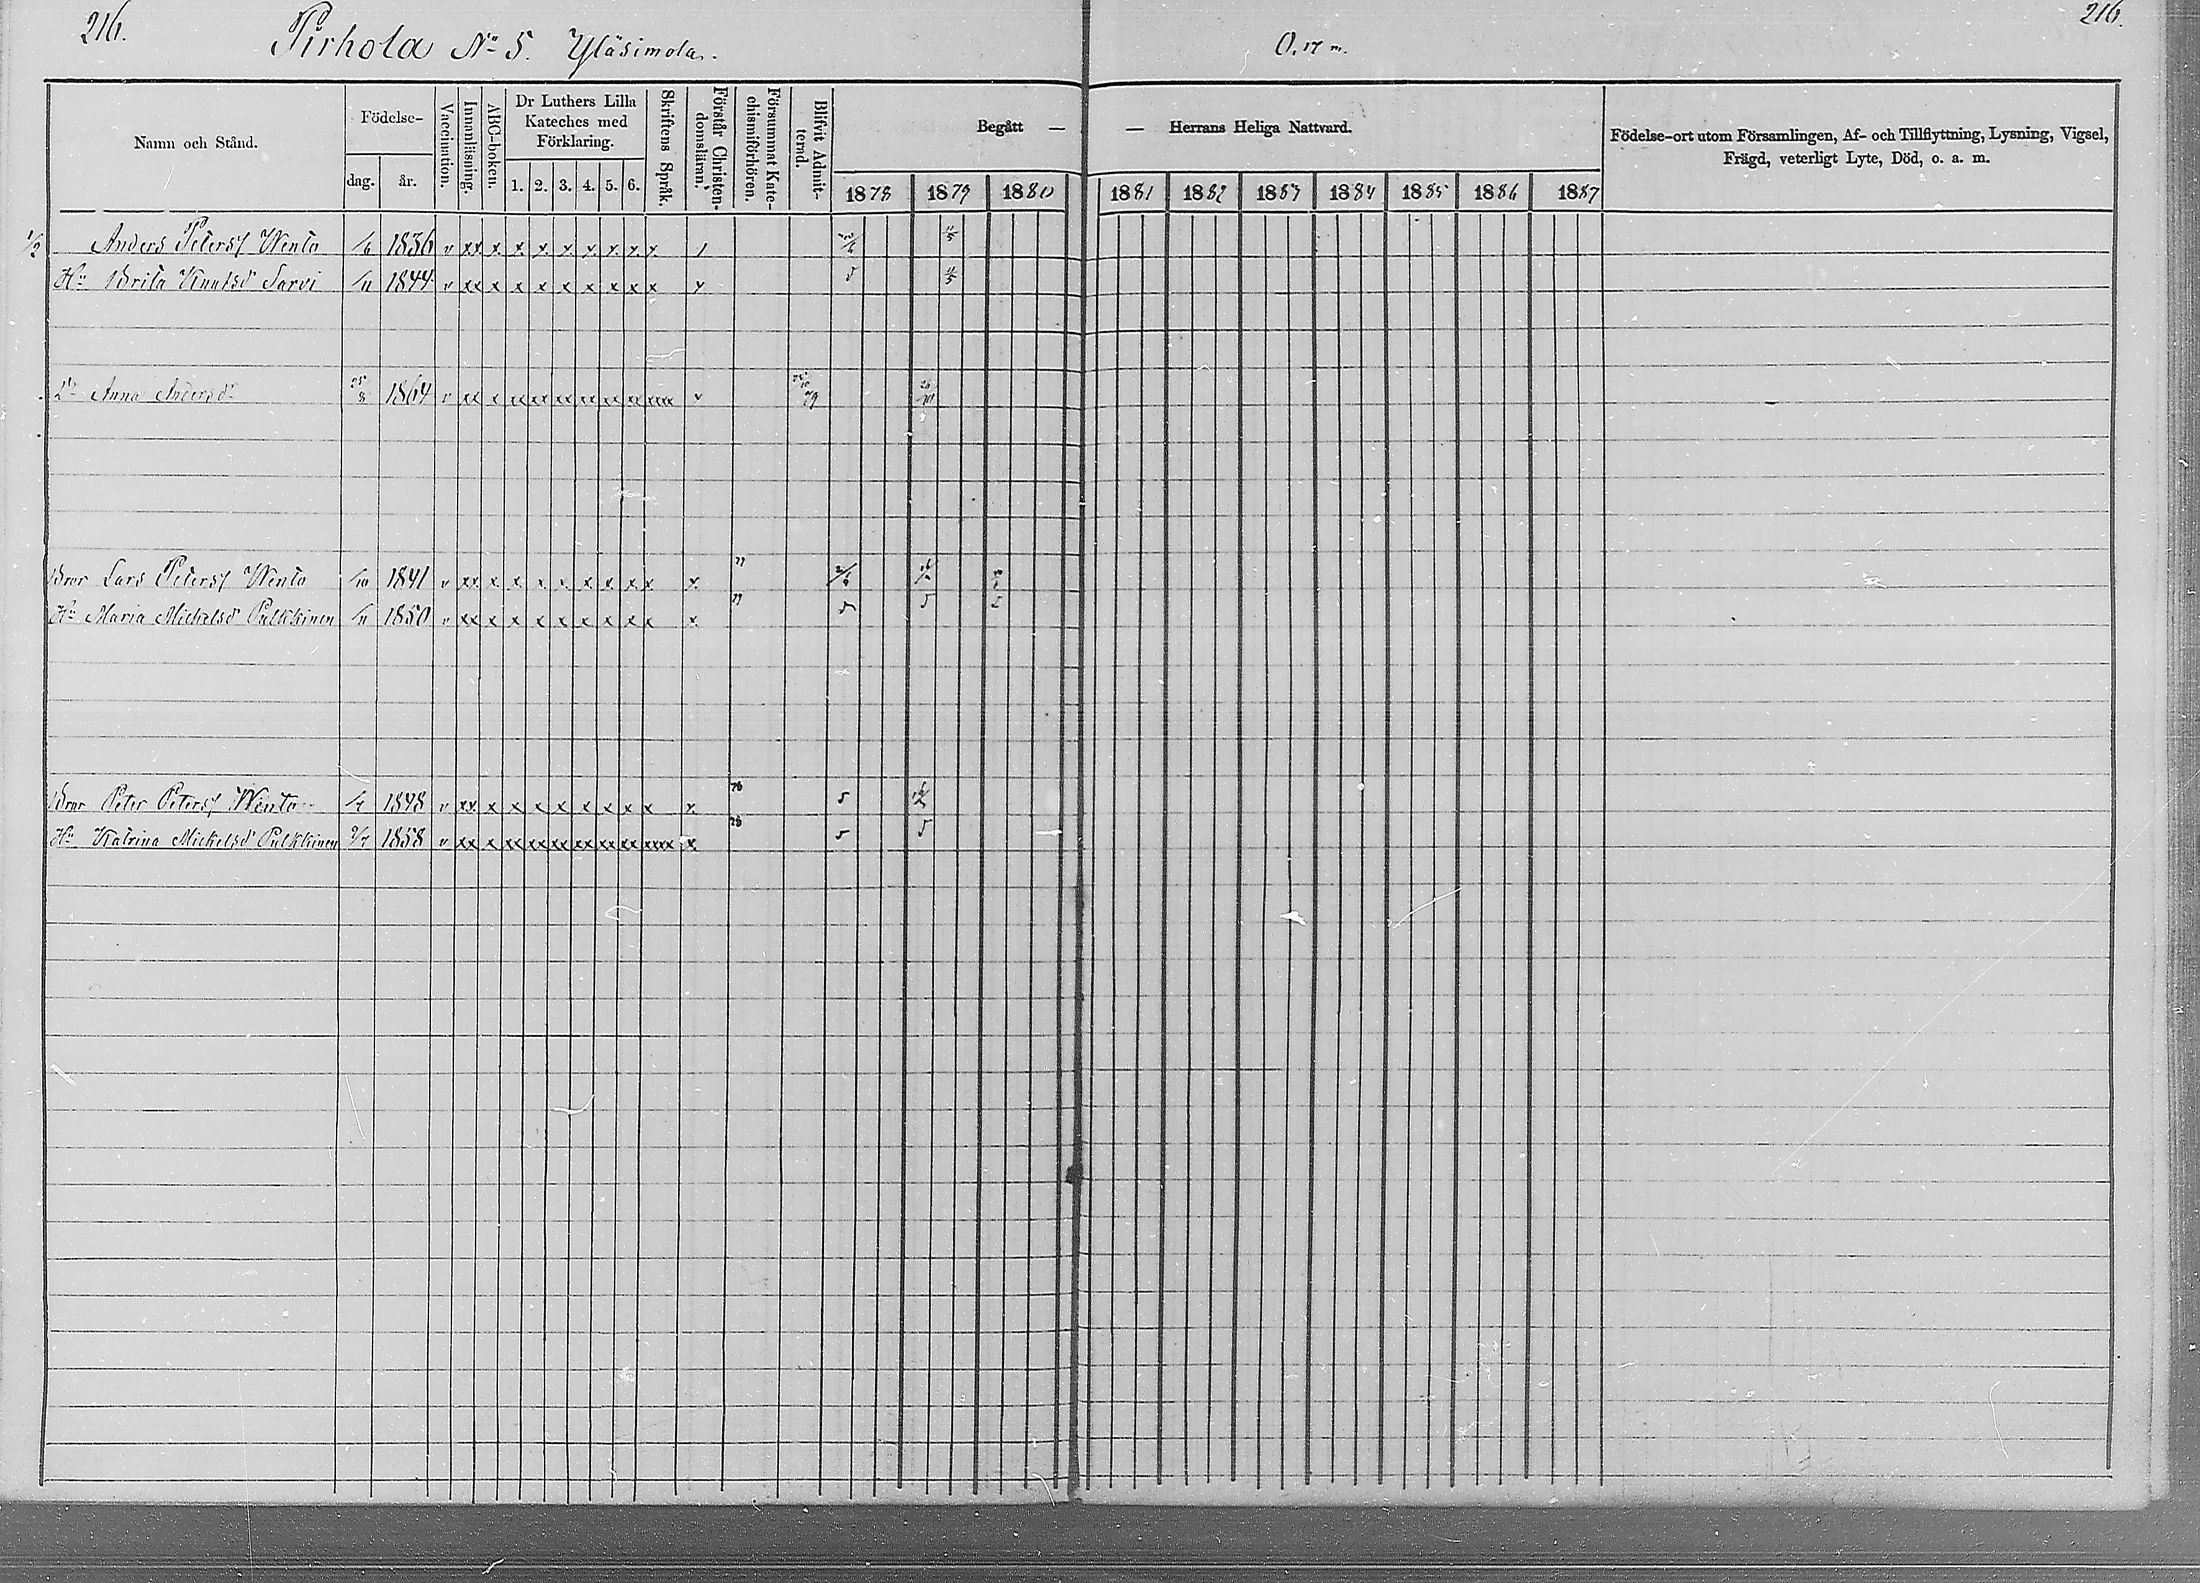 216. Pirhola No 5. Yläsimola. O. 17 m. 216.
Namn och Stånd. Födelse- dag. år. Vaccination. Innanläsning. ABC-boken. Dr Luthers Lilla Kateches med Förklaring. 1. 2. 3. 4. 5. 6. Skriftens Språk. Förstår Christendomsläran. Försummat Katechismiförhören. Blifvit Admitterad. Begått — — Herrans Heliga Nattvard. Födelse-ort utom Församlingen, Af- och Tillflyttning, Lysning, Vigsel, Frägd, veterligt Lyte, Död, o. a. m.
1878 1879 1880 1881 1882 1883 1884 1885 1886 1887
1/2 Anders Peters/ Wento /6 1836 v xx x x x x x x x x
Hu Brita Knutsd Sarvi /11 1844 v xx x x x x x x x x v
Dr Anna Andersdr 25/8 1864 v xx x xx xx xx xx xx xx xxxx v 79
Bror Lars Peters/ Wento /10 1841 v xx x x x x x x x x x 77
Hu Maria Michelsd Pulkkinen /11 1850 v xx x x x x x x x x x 77 5 5
Bror Peter Peters/ Wento /7 1848 v xx x x x x x x x x x 78 5
Hu Katrina Mickelsd Pulkkinen 9/7 1858 v xx x xx xx xx xx xx xx xxxx x 78 5 5